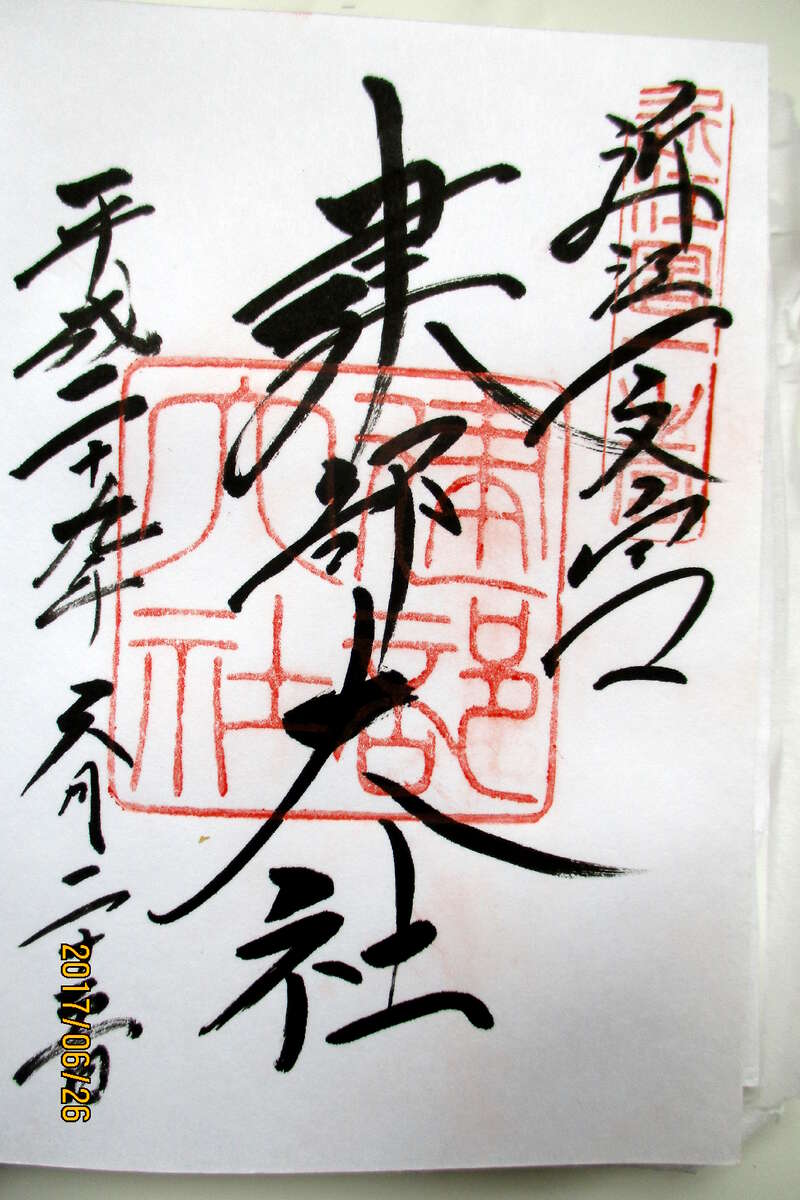 近江國一之宮
近江一之宮
建部大社
建部大社
平成二十九年 六月二十
2017/06/26